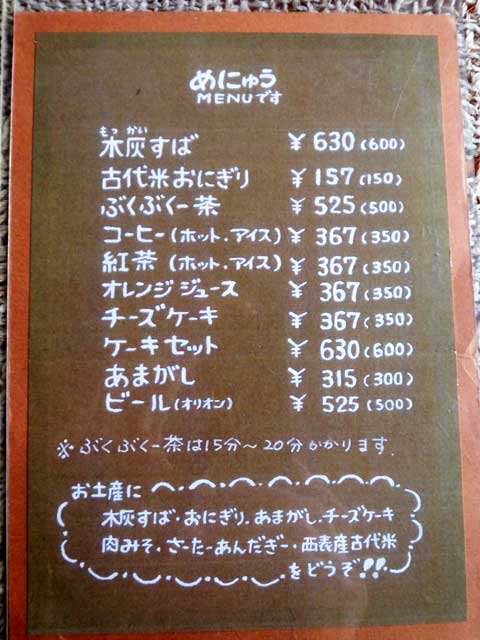 めにゅう
MENUです
もっかい
木灰すば ¥630(600)
古代米おにぎり ¥157(150)
ぶくぶくー茶 ¥525(500)
コーヒー(ホット.アイス) ¥367(350)
紅茶(ホット.アイス) ¥367(350)
オレンジジュース ¥367(350)
チーズケーキ ¥367(350)
ケーキセット ¥630(600)
あまがし ¥315(300)
ビール(オリオン) ¥525(500)
※ぶくぶくー茶は15分～20分かかります.
お土産に
木灰すば・おにぎり.あまがし.チーズケーキ
肉みそ.さーたーあんだぎー・西表産古代米
をどうぞ!!